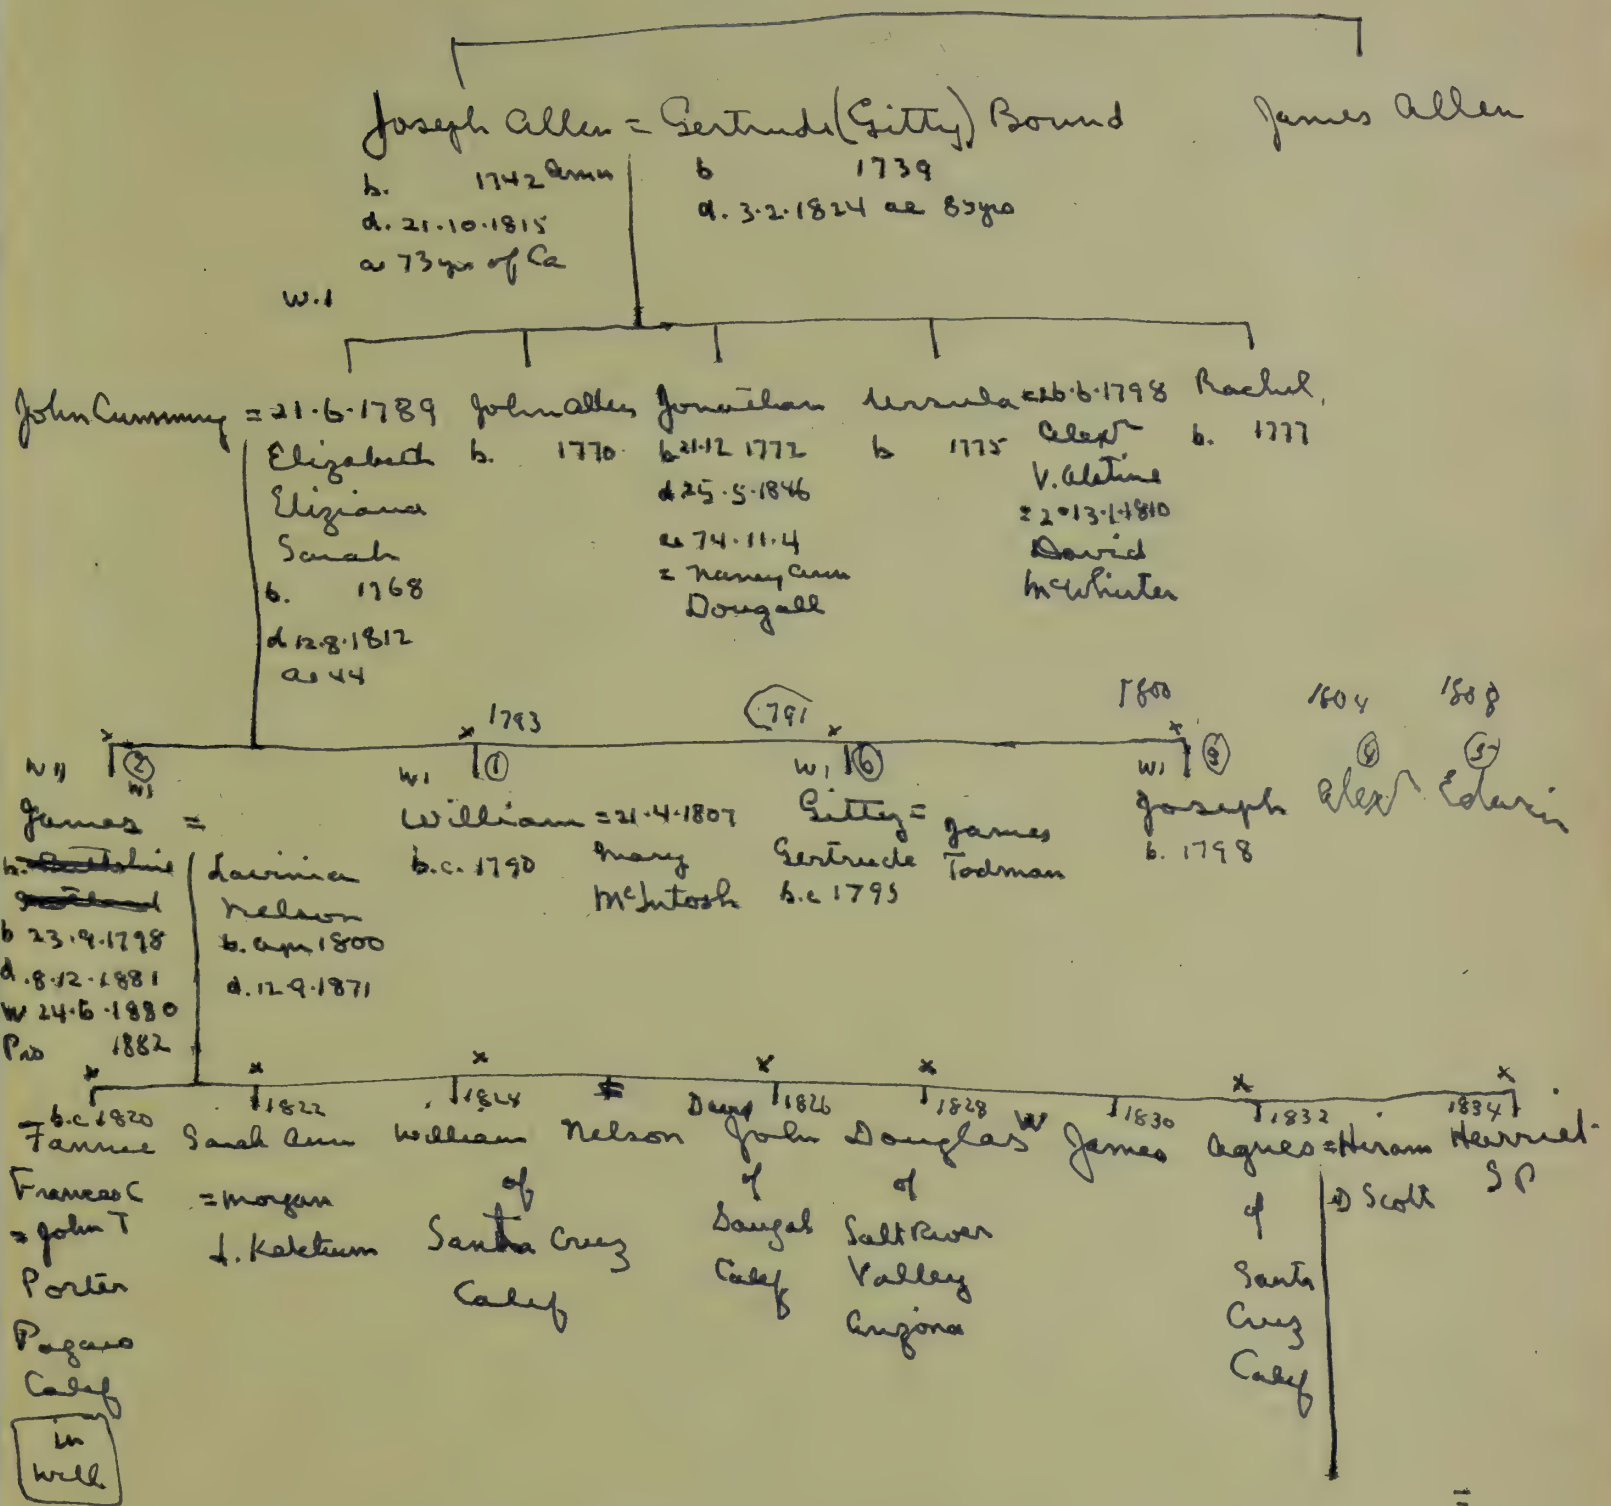 Joseph Allen = Gertrude (Gitty) Bound
b. 1742
d. 21.10.1815
ae 73 yrs of Ca
b 1739
d. 3.2.1824 ae 85 yrs
James Allen
W.1
John Cumming = 21.6.1789
Elizabeth
Eliziana
Sarah
b. 1768
d 12.8.1812
ae 44
John Allen
b. 1770
Jonathan
b 21.12 1772
d 25.5.1846
ae 74.11.4
= Nancy Ann
Dougall
Ursula = 26.6.1798
b 1775
Alexr
V. Alstine
= 2° 13.1.1810
David
McWhirter
Rachel
b. 1777
x
②
W1
James =
b 23.9.1798
d. 8.12.1881
W 24.6.1880
Pro 1882
Lavinia
Nelson
b. 1800
d. 12.9.1871
x 1793
W1 ①
William = 21.4.1807
b.c. 1790
Mary
McIntosh
1791 x
W1 ⑥
Gitty =
Gertrude
b.c 1795
James
Todman
1800
x
W1 ③
Joseph
b. 1798
1804
④
Alexr
1808
⑤
Edwin
x
b.c 1820
Fannie
Frances C
= John T
Porter
Pagaro
Calif
in
Will
x
1822
Sarah Ann
= Morgan
Ketchum
x
1824
William
of
Santa Cruz
Calif
Nelson
x
1826
John
of
Calif
x
1828
Douglas
of
Salt River
Valley
Arizona
W
1830
James
x
1832
Agnes = Hiram
D Scott
of
Santa
Cruz
Calif
x
1834
Harriet
SP
=